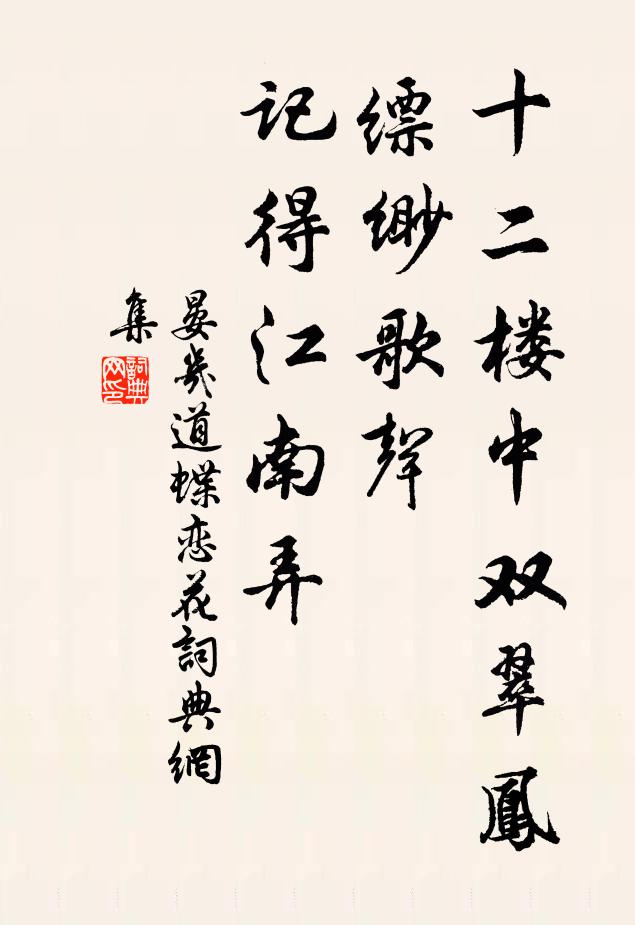 十二楼中双翠鳳
缥缈歌聲
记得江南弄
晏幾道蝶恋花詞典網
集
詞典
网印